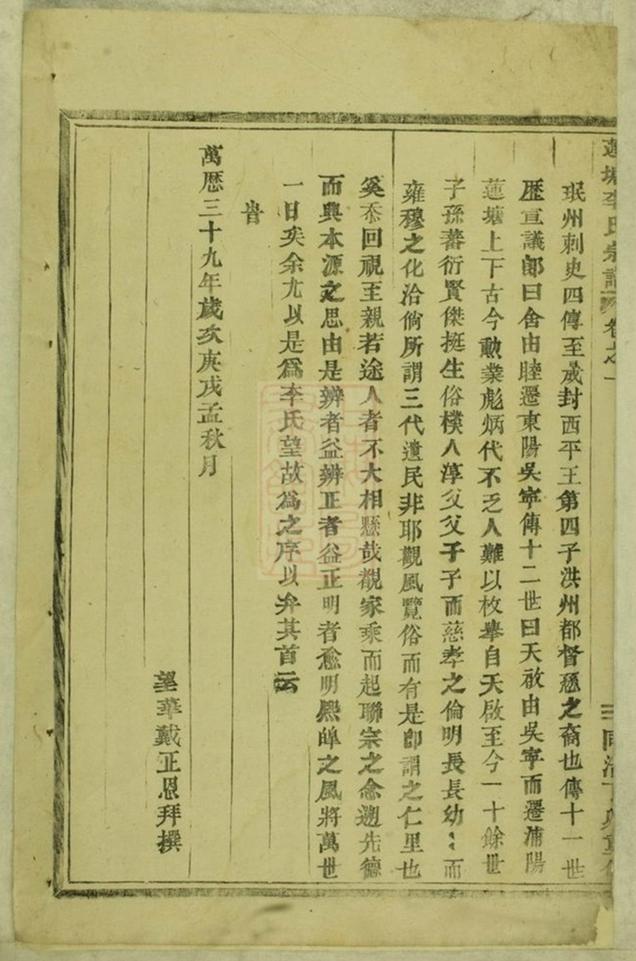 蓮塘李氏宗譜 卷之一
珉州刺史四傳至晟封西平王第四子洪州都督憑之裔也傳十一世
歷宣議郎曰舍由睦遷東陽吳寧傳十二世曰天啟由吳寧而遷浦陽
蓮塘上下古今勳業彪炳代不乏人難以枚舉自天啟至今一十餘世
子孫蕃衍賢傑挺生俗樸人淳父父子子而慈孝之倫明長長幼〻而
雍穆之化洽倘所謂三代遺民非耶觀風覽俗而有是即謂之仁里也
奚忝回視至親若途人者不大相懸哉觀家乘而起聯宗之念遡先德
而興本源之思由是辨者益辨正者益正明者愈明熙皥之風將萬世
一日矣余尤以是為李氏望故為之序以弁其首云
旹
萬歷三十九年歲次庚戌孟秋月
望華戴正恩拜撰